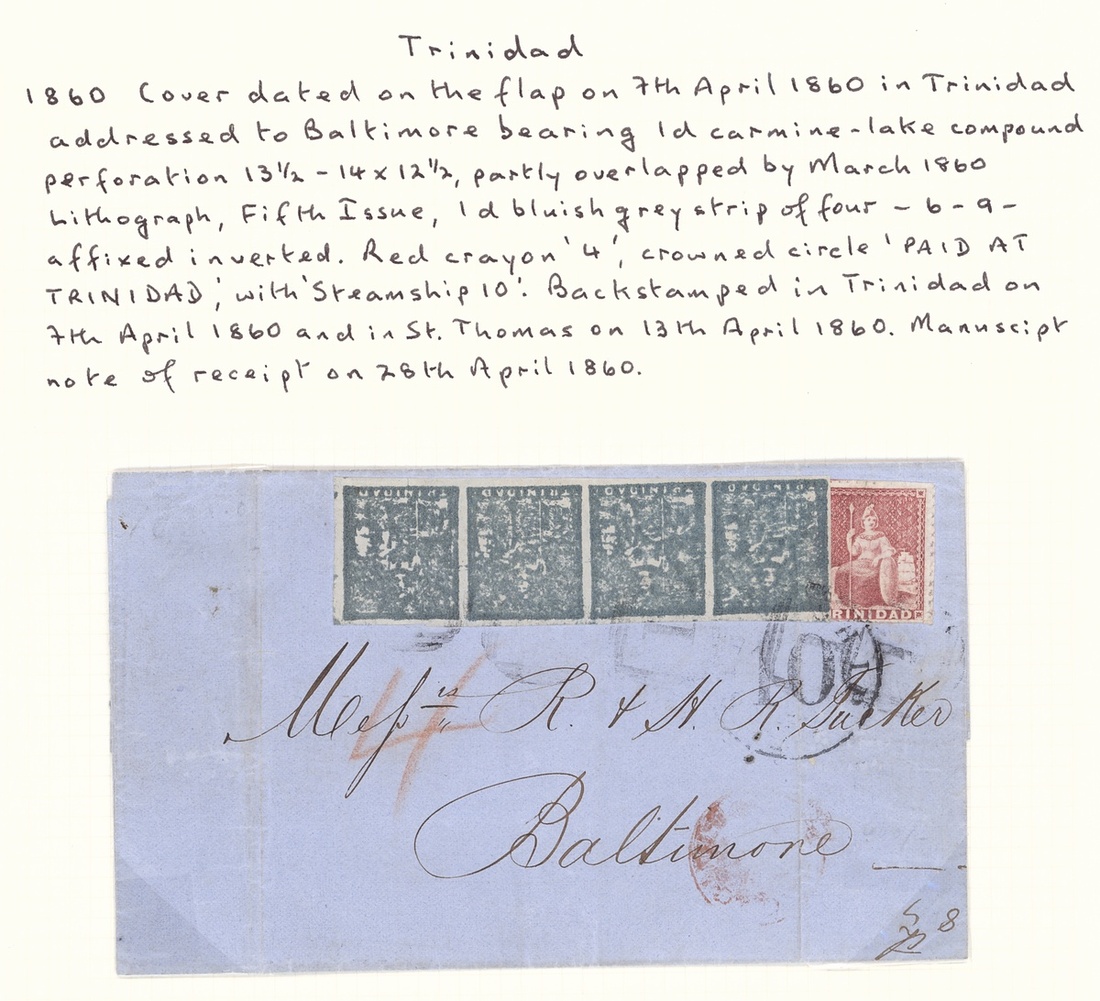 Trinidad
1860 Cover dated on the flap on 7th April 1860 in Trinidad
addressed to Baltimore bearing 1d carmine-lake compound
perforation 13½ - 14 x 12½, partly overlapped by March 1860
Lithograph, Fifth Issue, 1d bluish grey strip of four - 6-9 -
affixed inverted. Red crayon '4', crowned circle 'PAID AT
TRINIDAD', with 'Steamship 10'. Backstamped in Trinidad on
7th April 1860 and in St. Thomas on 13th April 1860. Manuscipt
note of receipt on 28th April 1860.
TRINIDAD TRINIDAD TRINIDAD TRINIDAD
RINIDAD
10
4
Messrs R. & H. R. Tucker
Baltimore
8